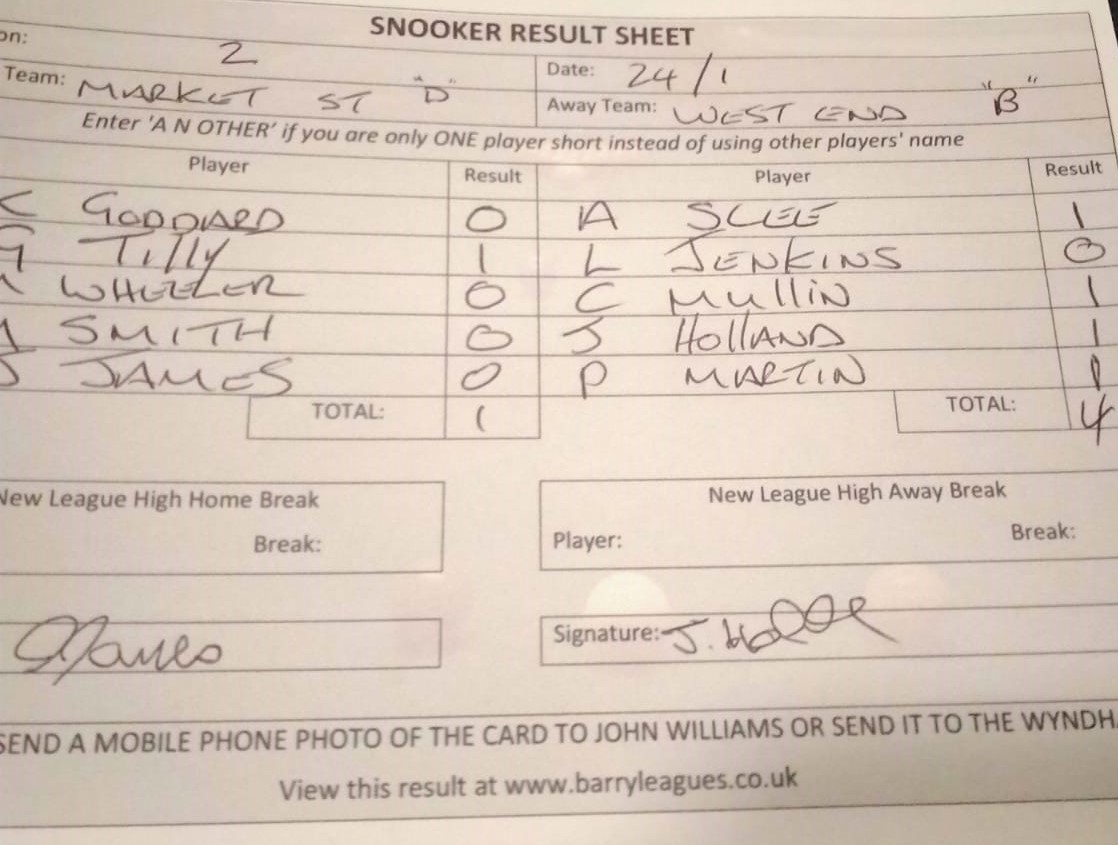 SNOOKER RESULT SHEET
on: 2
Date: 24/1
Team: MARKET ST "D"
Away Team: WEST END "B"
Enter 'A N OTHER' if you are only ONE player short instead of using other players' name
Player Result Player Result
GODDARD 0 A SLEE 1
G TILLY 1 L JENKINS 0
WHEELER 0 C MULLIN 1
SMITH 0 J HOLLAND 1
JAMES 0 P MARTIN 1
TOTAL: 1 TOTAL: 4
New League High Home Break
New League High Away Break
Break:
Player: Break:
Signature: J. Holl
SEND A MOBILE PHONE PHOTO OF THE CARD TO JOHN WILLIAMS OR SEND IT TO THE WYNDHA
View this result at www.barryleagues.co.uk